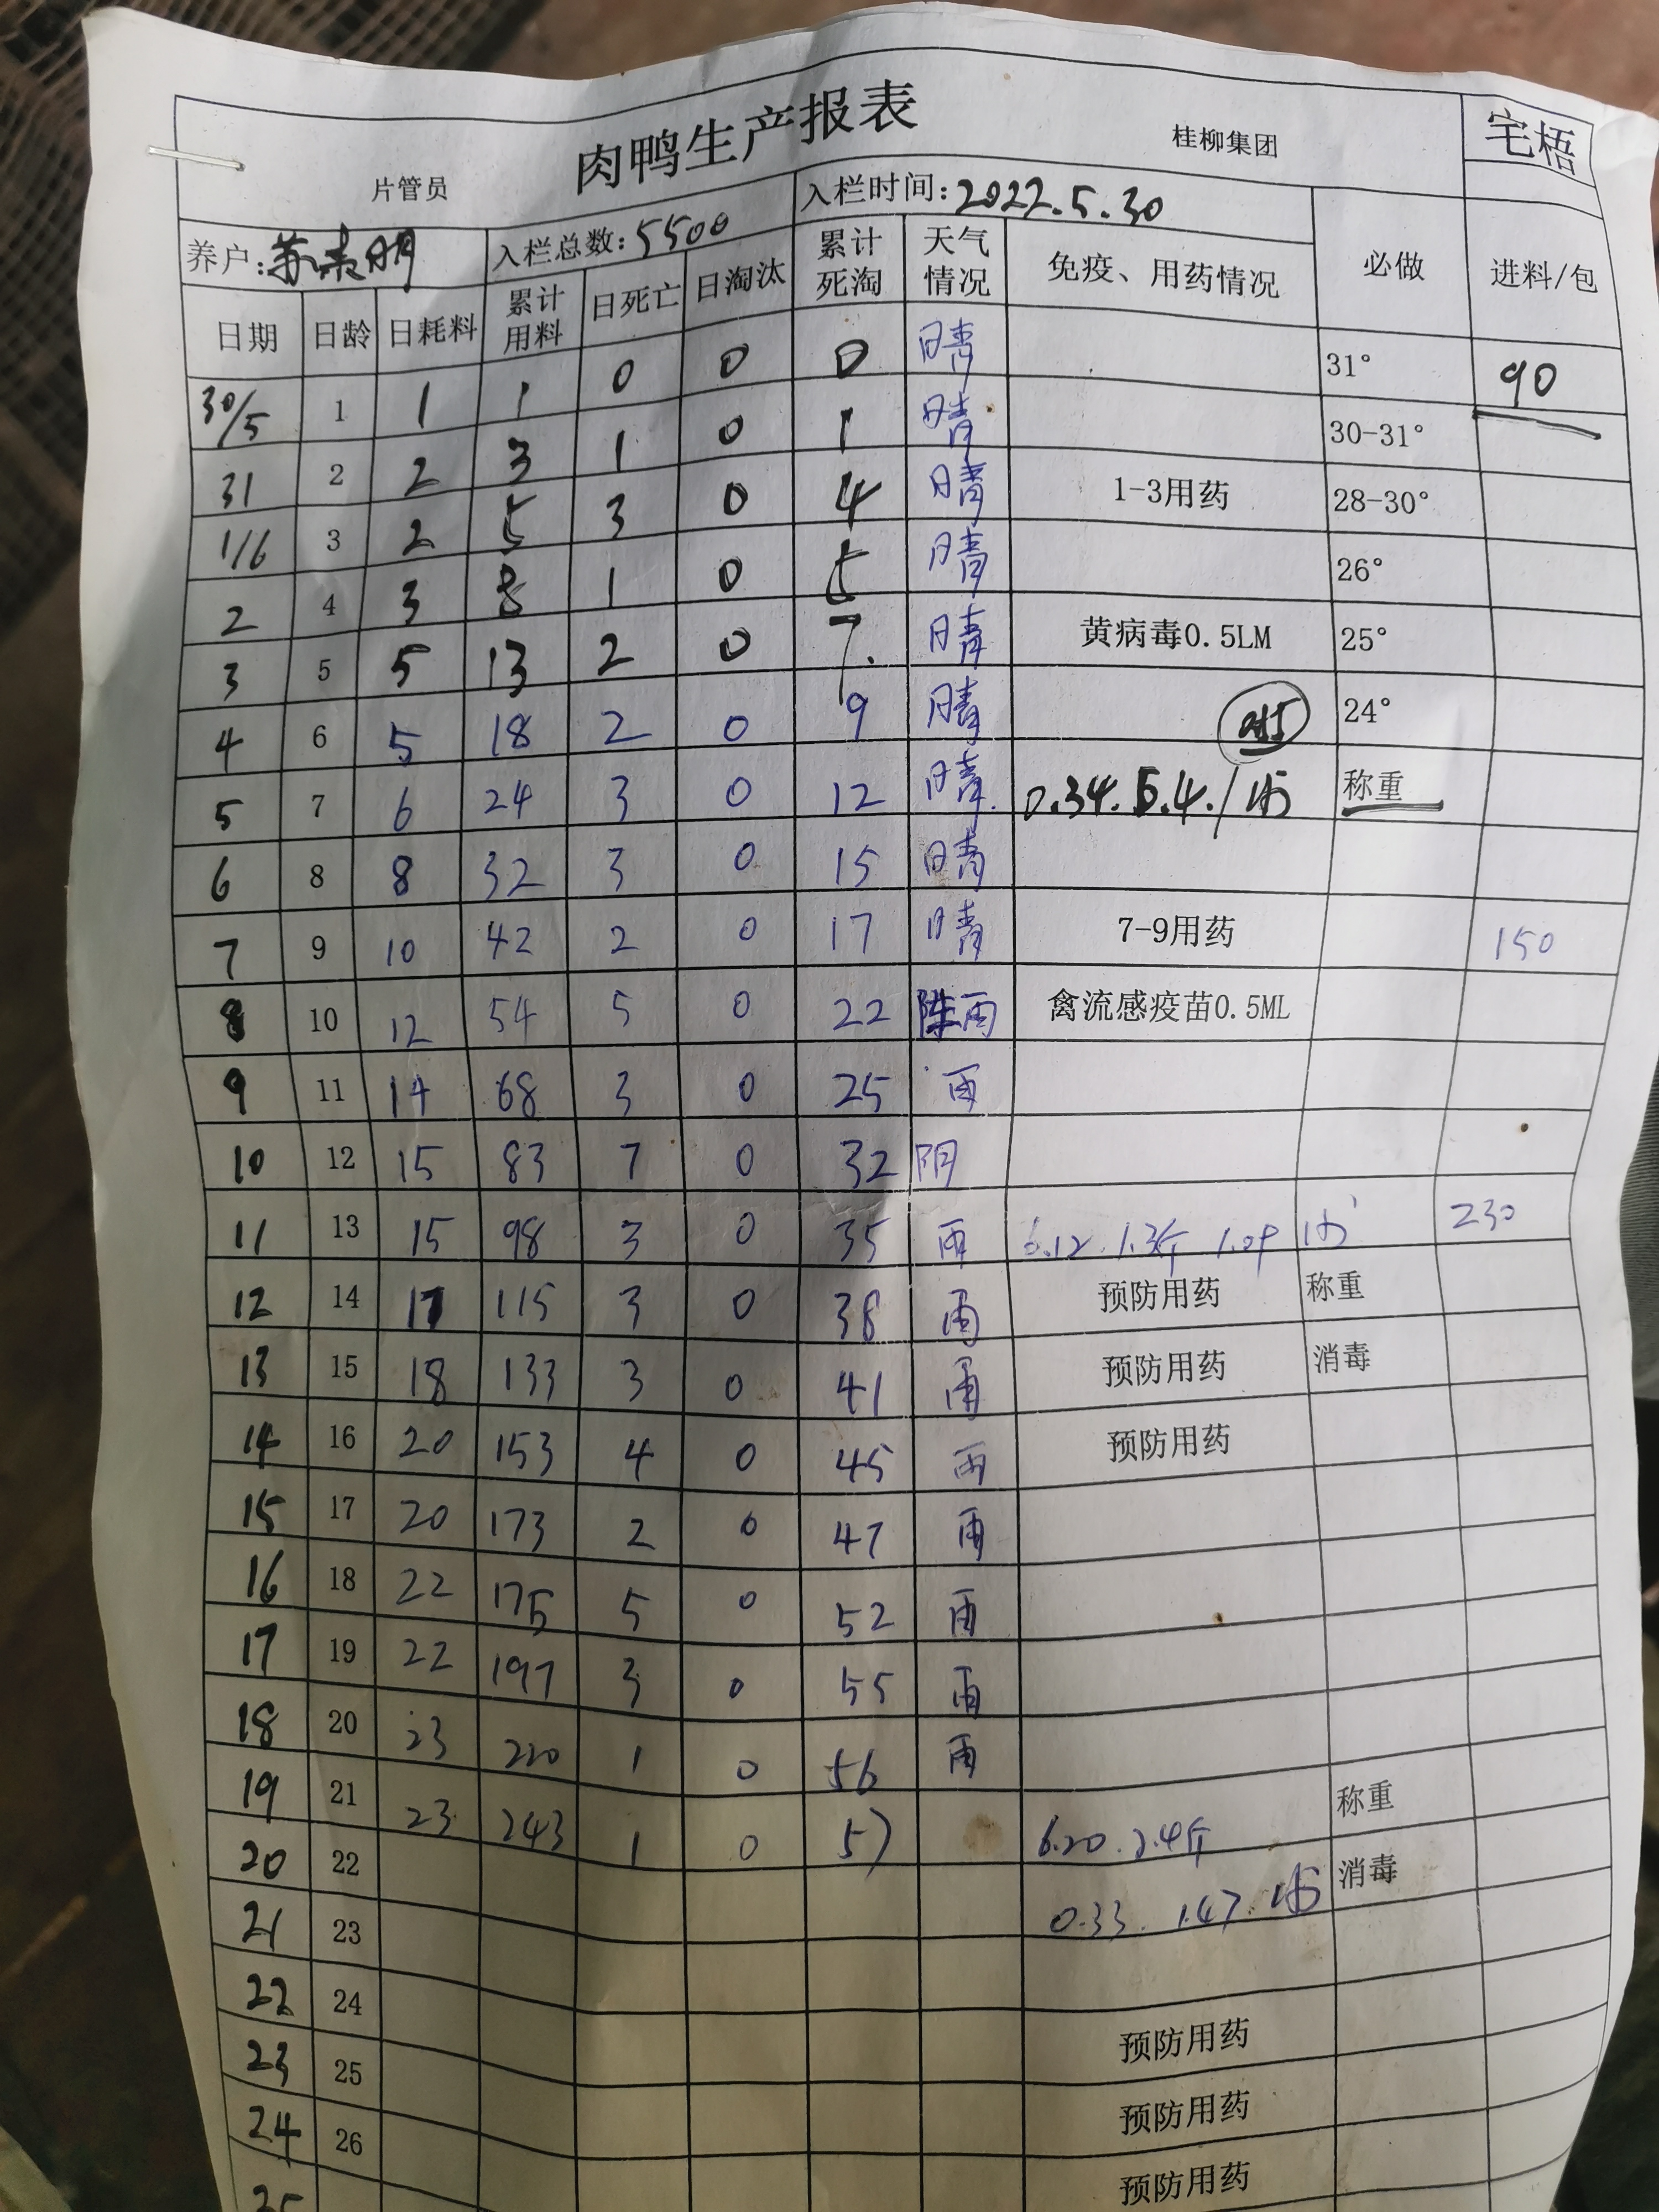 肉鸭生产报表
桂柳集团
宅梧
片管员
养户:
入栏总数:5500
入栏时间:2022.5.30
日期 日龄 日耗料 累计用料 日死亡 日淘汰 累计死淘 天气情况 免疫、用药情况 必做 进料/包
30/5 1 1 1 0 0 0 晴 31° 90
31 2 2 3 1 0 1 晴 30-31°
1/6 3 2 5 3 0 4 晴 1-3用药 28-30°
2 4 3 8 1 0 5 晴 26°
3 5 5 13 2 0 7. 晴 黄病毒0.5LM 25°
4 6 5 18 2 0 9 晴 24°
5 7 6 24 3 0 12 晴 称重
6 8 8 32 3 0 15 晴
7 9 10 42 2 0 17 晴 7-9用药 150
8 10 12 54 5 0 22 阵雨 禽流感疫苗0.5ML
9 11 14 68 3 0 25 雨
10 12 15 83 7 0 32 阴
11 13 15 98 3 0 35 雨 6.12 230
12 14 17 115 3 0 38 雨 预防用药 称重
13 15 18 133 3 0 41 雨 预防用药 消毒
14 16 20 153 4 0 45 雨 预防用药
15 17 20 173 2 0 47 雨
16 18 22 175 5 0 52 雨
17 19 22 197 3 0 55 雨
18 20 23 220 1 0 56 雨
19 21 23 243 1 0 57 6.20 2.4斤 称重
20 22 0.33. 1.47. 消毒
21 23
22 24 预防用药
23 25 预防用药
24 26 预防用药
25